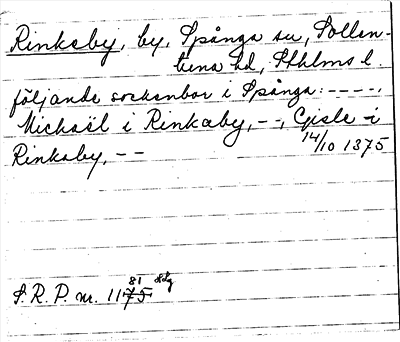 Rinkeby, by, Spånga sn, Sollen-
tuna hd, Sthlms l.
följande sockenbor i Spånga: ----,
Michaël i Rinkæby, --, Gisle i
Rinkaby, --
14/10 1375
S. R. P. nr. 1175
81